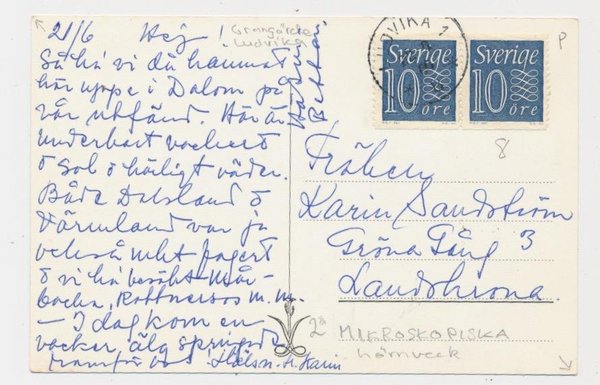 21/6 Hej!
Grangärde
Ludvika
Så ha vi då hamnat
här uppe i Dalom på
vår utfänd. Här är
underbart vackert
o sol o härligt väder.
Både Dalsland o
Värmland var ju
också mkt fagert
o vi ha besökt Mår-
backa, Rottneros m.m.
– I dag kom en
vacker älg springande
framför oss! Hälsn. H. Karin
LUDVIKA 1
Sverige
10 öre
Sverige
10 öre
P
8
Fröken
Karin Sandström
Gröna Gång 3
Landskrona.
2 st
MIKROSKOPISKA
hörnveck